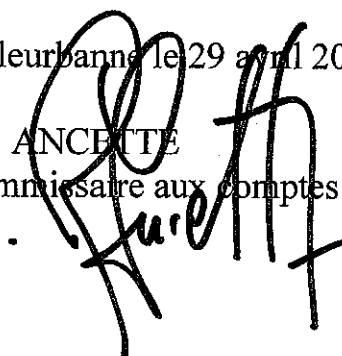 leurbanne le 29 avril 20
ANCETTE
mmissaire aux comptes